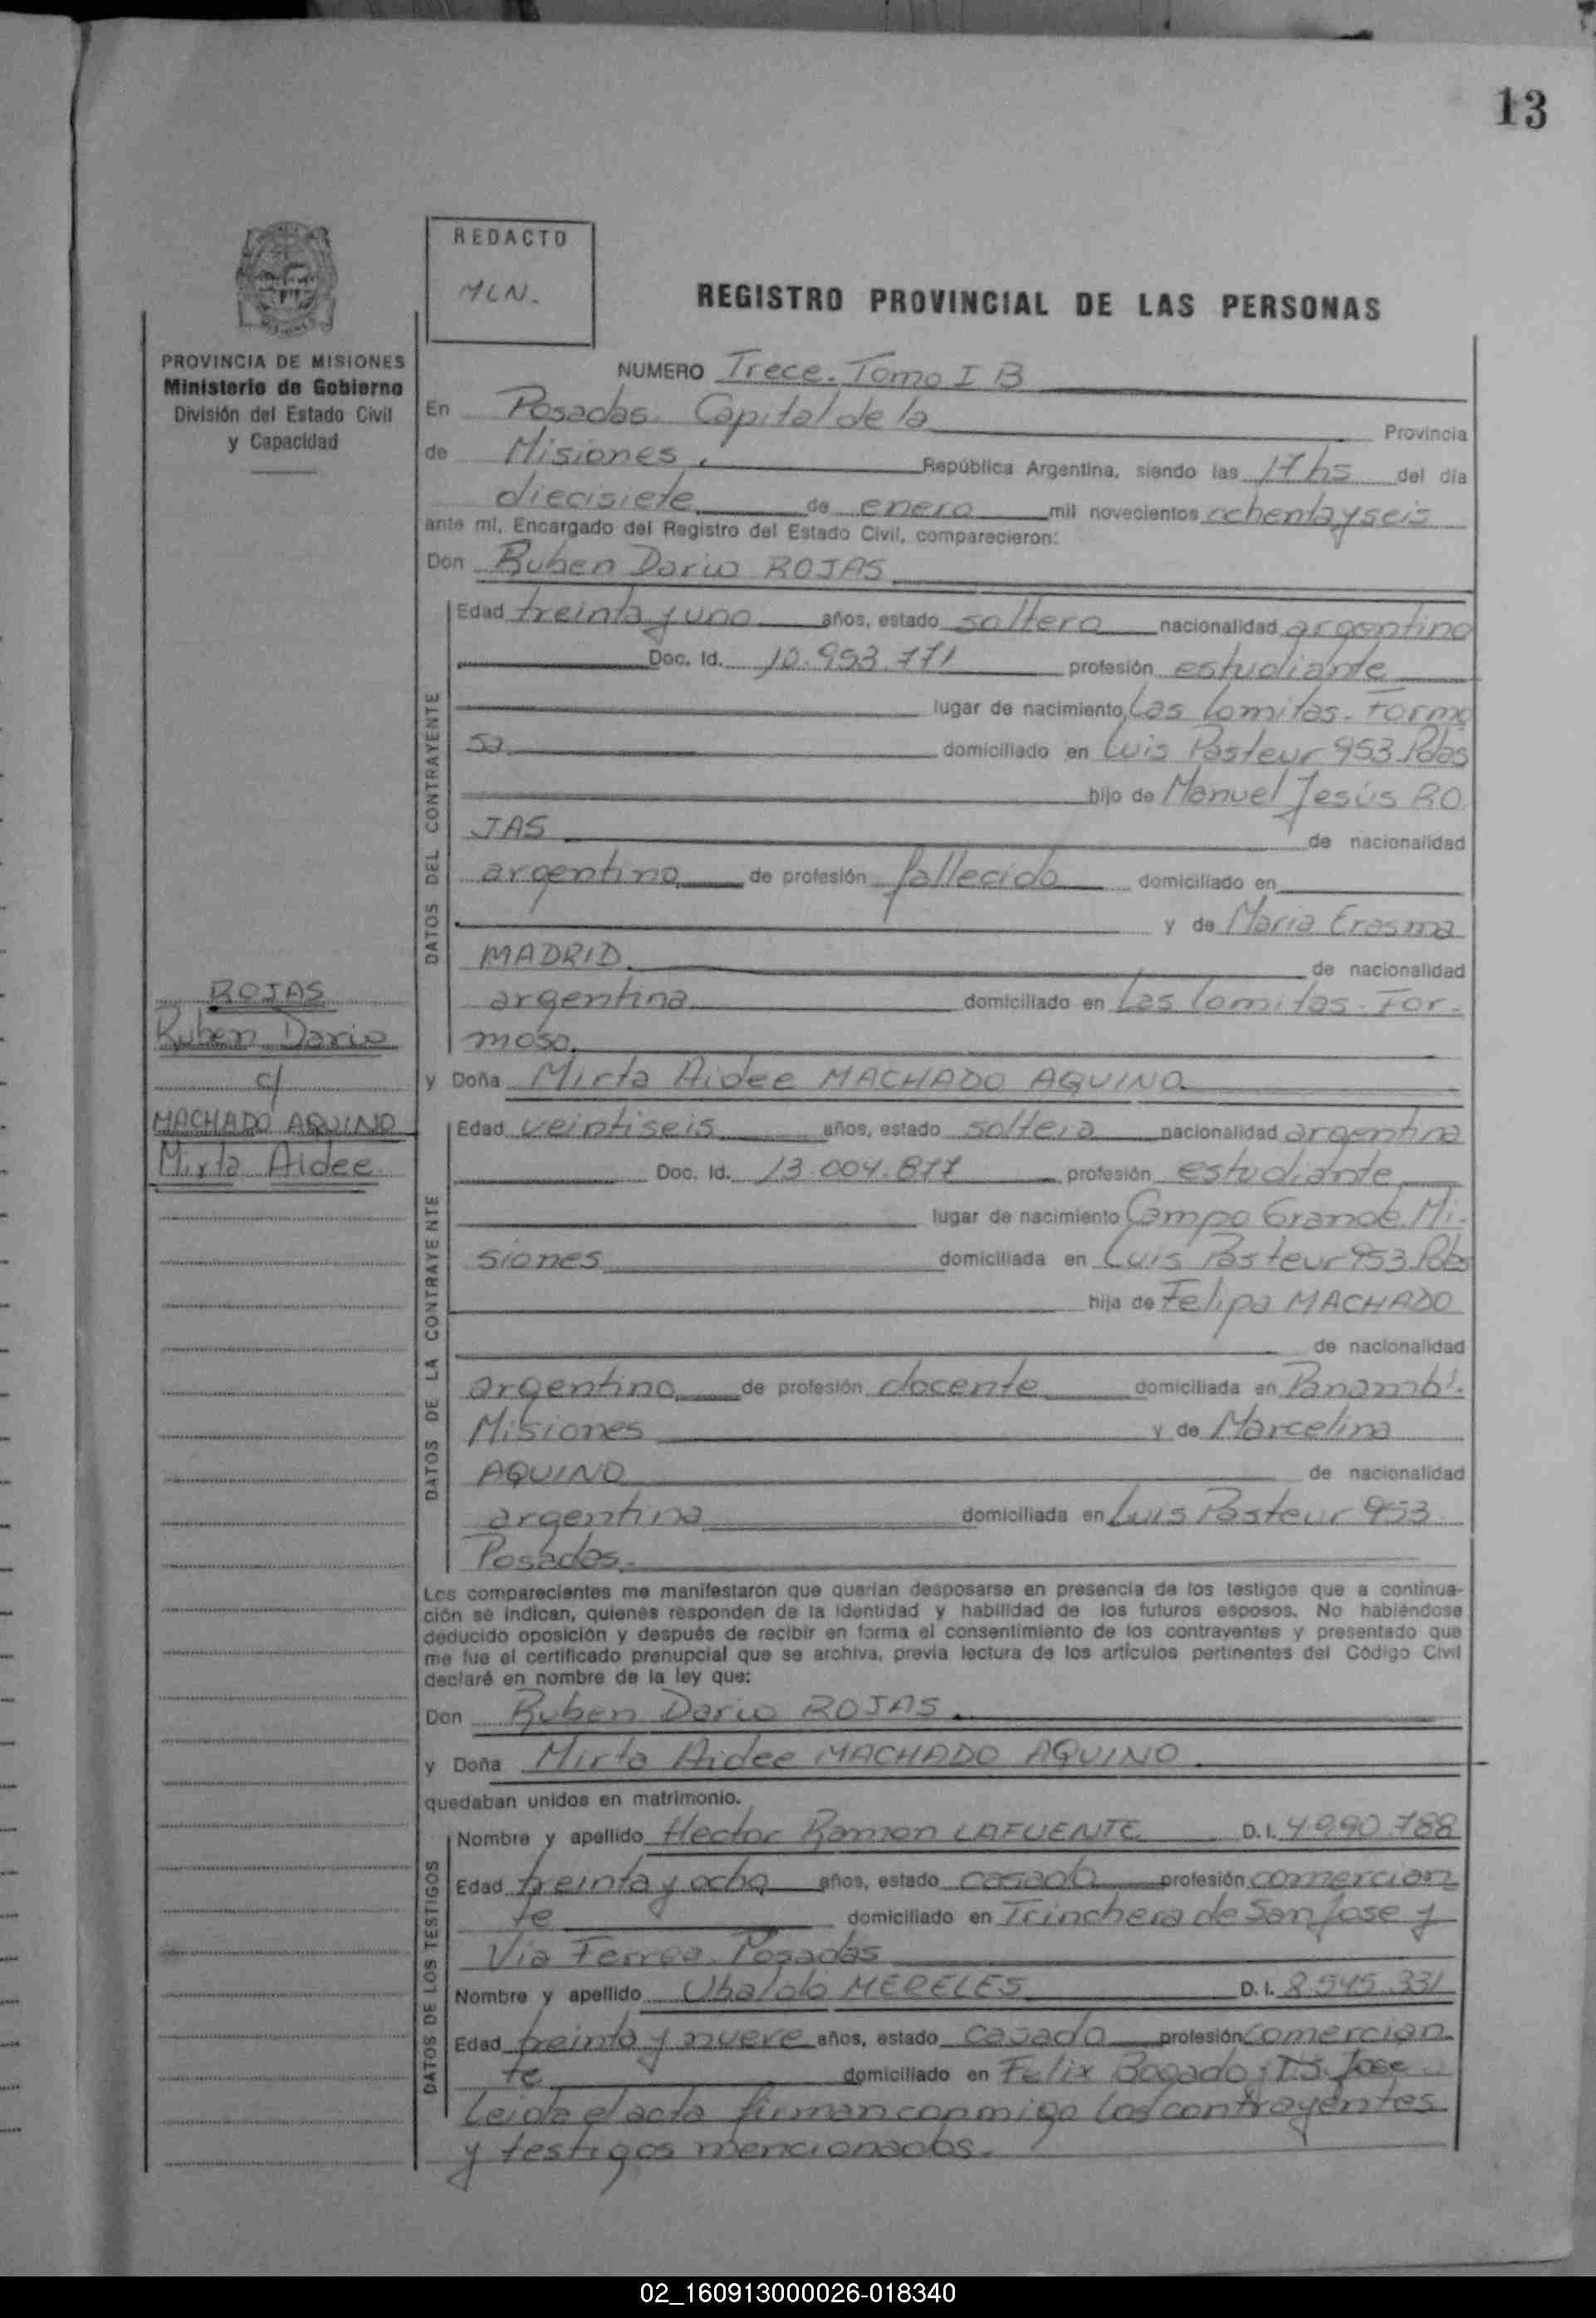 13
REDACTO
MLN.
REGISTRO PROVINCIAL DE LAS PERSONAS
PROVINCIA DE MISIONES
Ministerio de Gobierno
División del Estado Civil
y Capacidad
NUMERO Trece. Tomo I B
En Posadas. Capital de la Provincia
de Misiones, República Argentina, siendo las 17 hs del día
diecisiete de enero mil novecientos ochenta y seis
ante mí, Encargado del Registro del Estado Civil, comparecieron:
Don Ruben Dario ROJAS
DATOS DEL CONTRAYENTE
Edad treinta y uno años, estado soltero nacionalidad argentino
Doc. Id. 10.953.771 profesión estudiante
lugar de nacimiento Las Lomitas. Formo
sa domiciliado en Luis Pasteur 953 Pdas
hijo de Manuel Jesús RO
JAS de nacionalidad
argentino de profesión fallecido domiciliado en
y de Maria Erasma
MADRID. de nacionalidad
argentina domiciliado en Las Lomitas. For-
mosa.
ROJAS
Ruben Dario
c/
MACHADO AQUINO
Mirta Aidee
y Doña Mirta Aidee MACHADO AQUINO.
DATOS DE LA CONTRAYENTE
Edad veintiseis años, estado soltera nacionalidad argentina
Doc. Id. 13.004.877 profesión estudiante
lugar de nacimiento Campo Grande. Mi-
siones domiciliada en Luis Pasteur 953 Pdas
hija de Felipa MACHADO
de nacionalidad
argentino de profesión docente domiciliada en Panambí.
Misiones y de Marcelina
AQUINO de nacionalidad
argentina domiciliada en Luis Pasteur 953.
Posadas.
Los comparecientes me manifestaron que querían desposarse en presencia de los testigos que a continua-
ción se indican, quienes responden de la identidad y habilidad de los futuros esposos. No habiéndose
deducido oposición y después de recibir en forma el consentimiento de los contrayentes y presentado que
me fue el certificado prenupcial que se archiva, previa lectura de los artículos pertinentes del Código Civil
declaré en nombre de la ley que:
Don Ruben Dario ROJAS.
y Doña Mirta Aidee MACHADO AQUINO.
quedaban unidos en matrimonio.
DATOS DE LOS TESTIGOS
Nombre y apellido Hector Ramon LAFUENTE D.I. 4.990.788
Edad treinta y ocho años, estado casado profesión comercian
te domiciliado en Trinchera de San Jose y
Via Ferrea. Posadas
Nombre y apellido Ubaldo MERELES D.I. 8.545.331
Edad treinta y nueve años, estado casado profesión comercian
te domiciliado en Felix Bogado y T.S. Jose
Leida el acta firman conmigo los contrayentes
y testigos mencionados.
02_160913000026-018340